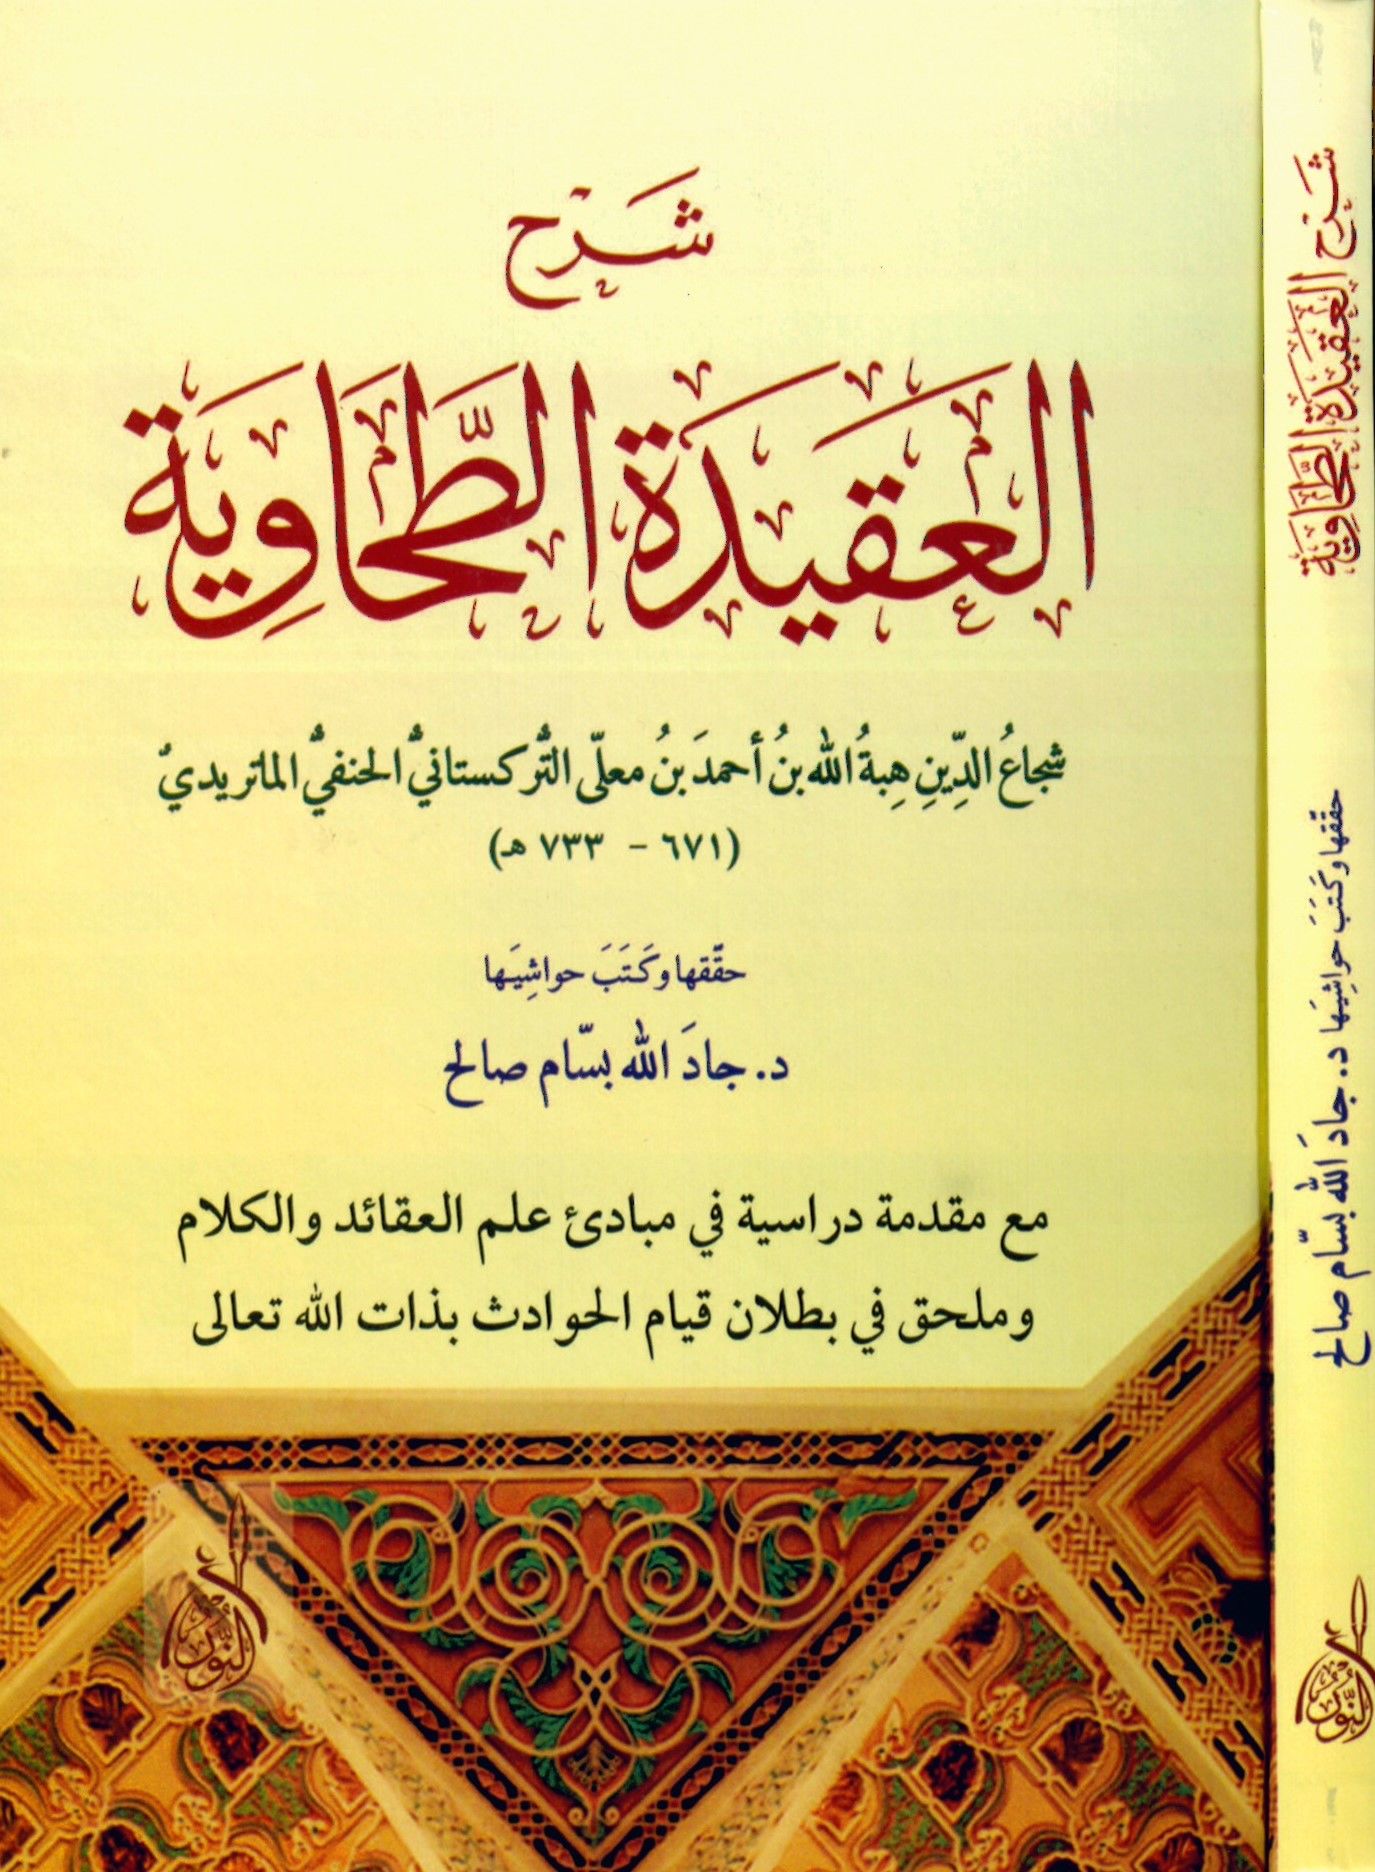 شَرْح
العَقِيدَة الطَّحَاوِيَة
شجاعُ الدِّينِ هِبةُ الله بنُ أحمدَ بنُ معلّى التُّركستانيُّ الحنفيُّ الماتريديُّ
(٦٧١ - ٧٣٣ هـ)
حقّقها وكَتَبَ حواشِيَها
د. جادَ الله بسّام صالح
مع مقدمة دراسية في مبادئ علم العقائد والكلام
وملحق في بطلان قيام الحوادث بذات الله تعالى
النُّور
شَرْح العَقِيدَة الطَّحَاوِيَة
حقّقها وكَتَبَ حواشِيَها د. جادَ الله بسّام صالح
النُّور